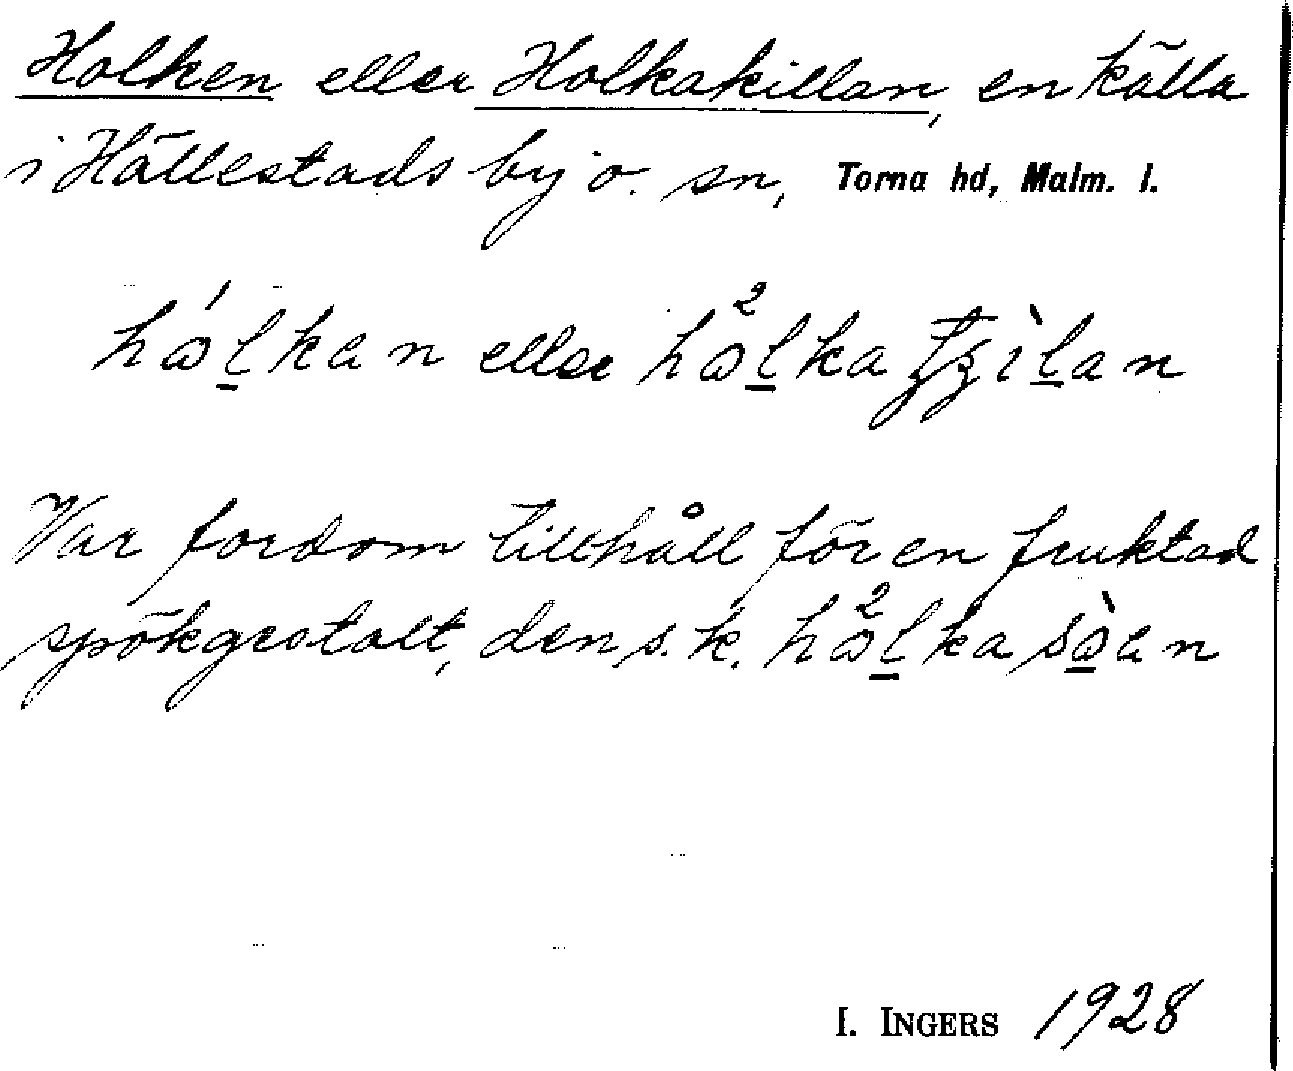 Holken eller Holkakillan, en källa
i Hällestads by o. sn, Torna hd, Malm. l.
hą́lkan eller hą̊²lka tʒìlan
Var fordom tillhåll för en fruktad
spökgestalt, den s.k. hå²lkasòan
I. INGERS 1928